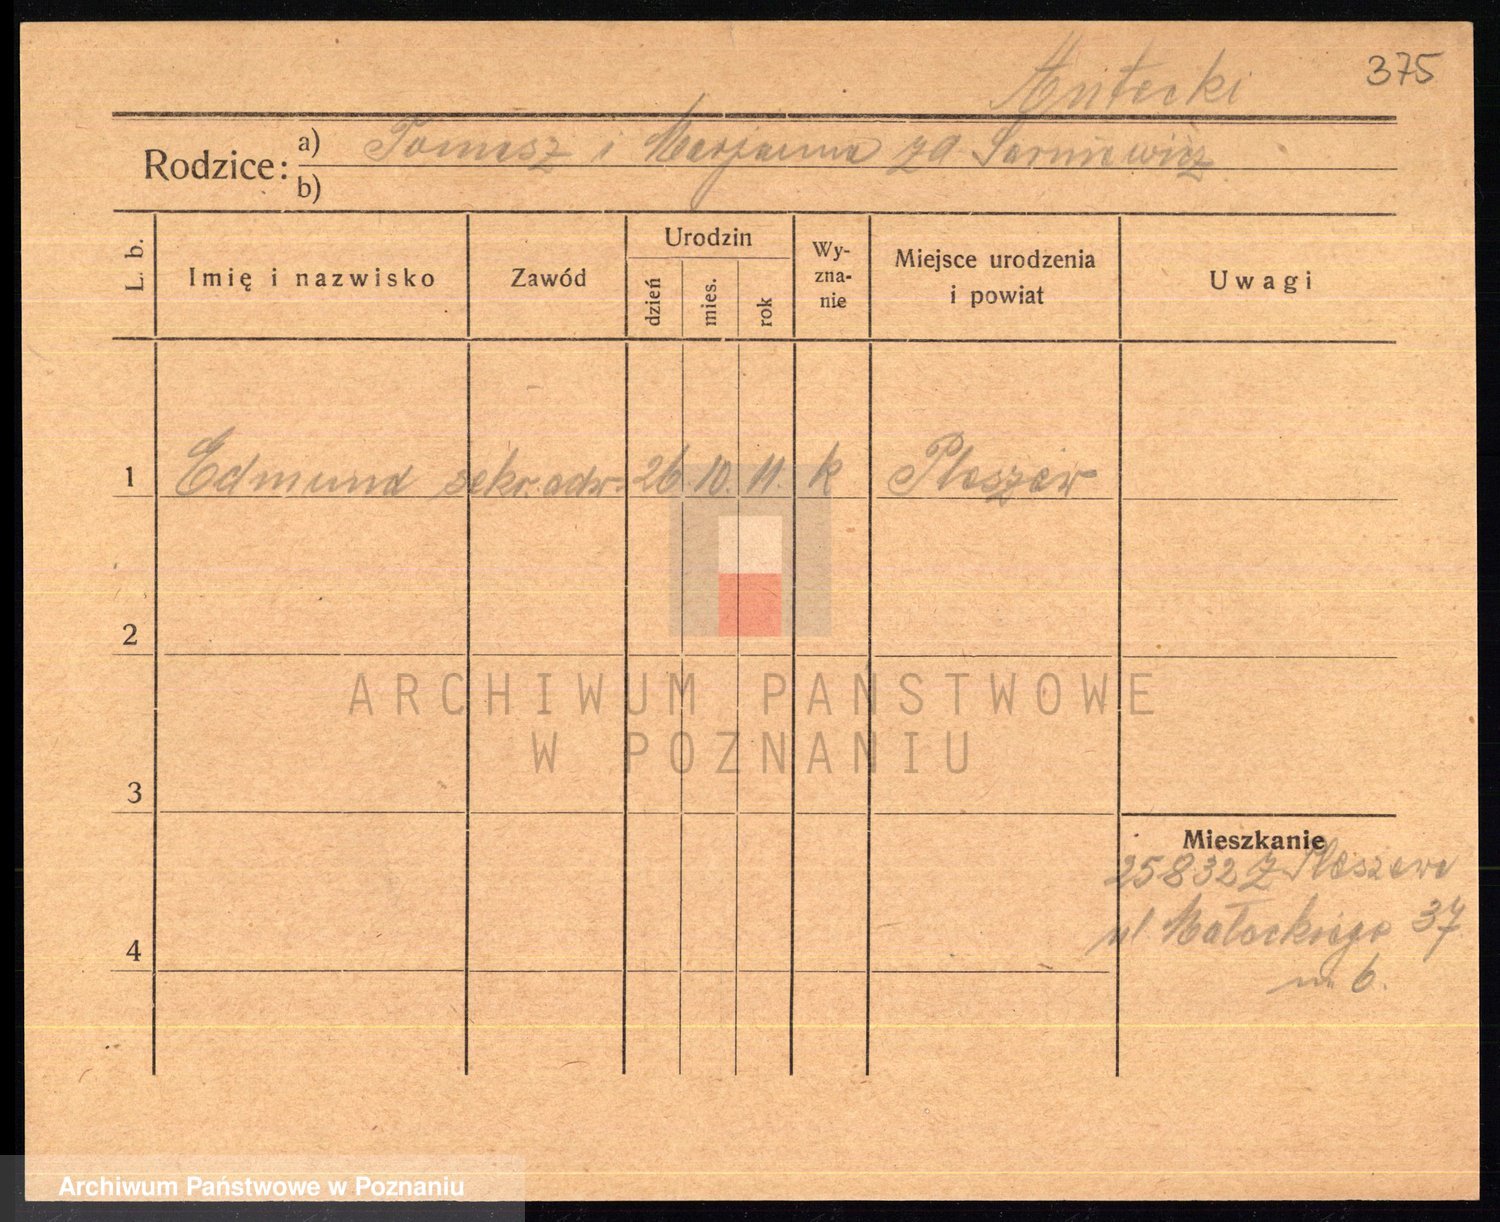 375
Antecki
Rodzice: a) Tomasz i Marjanna za Sarniewicz
b)
L. b.
Imię i nazwisko
Zawód
Urodzin
dzień
mies.
rok
Wy-
zna-
nie
Miejsce urodzenia
i powiat
Uwagi
1 Edmund sekr. adw. 26. 10. 11. k Pleszew
2
ARCHIWUM PAŃSTWOWE
W POZNANIU
3
Mieszkanie
25832 z Pleszewa
4
ul 37
m 6.
Archiwum Państwowe w Poznaniu